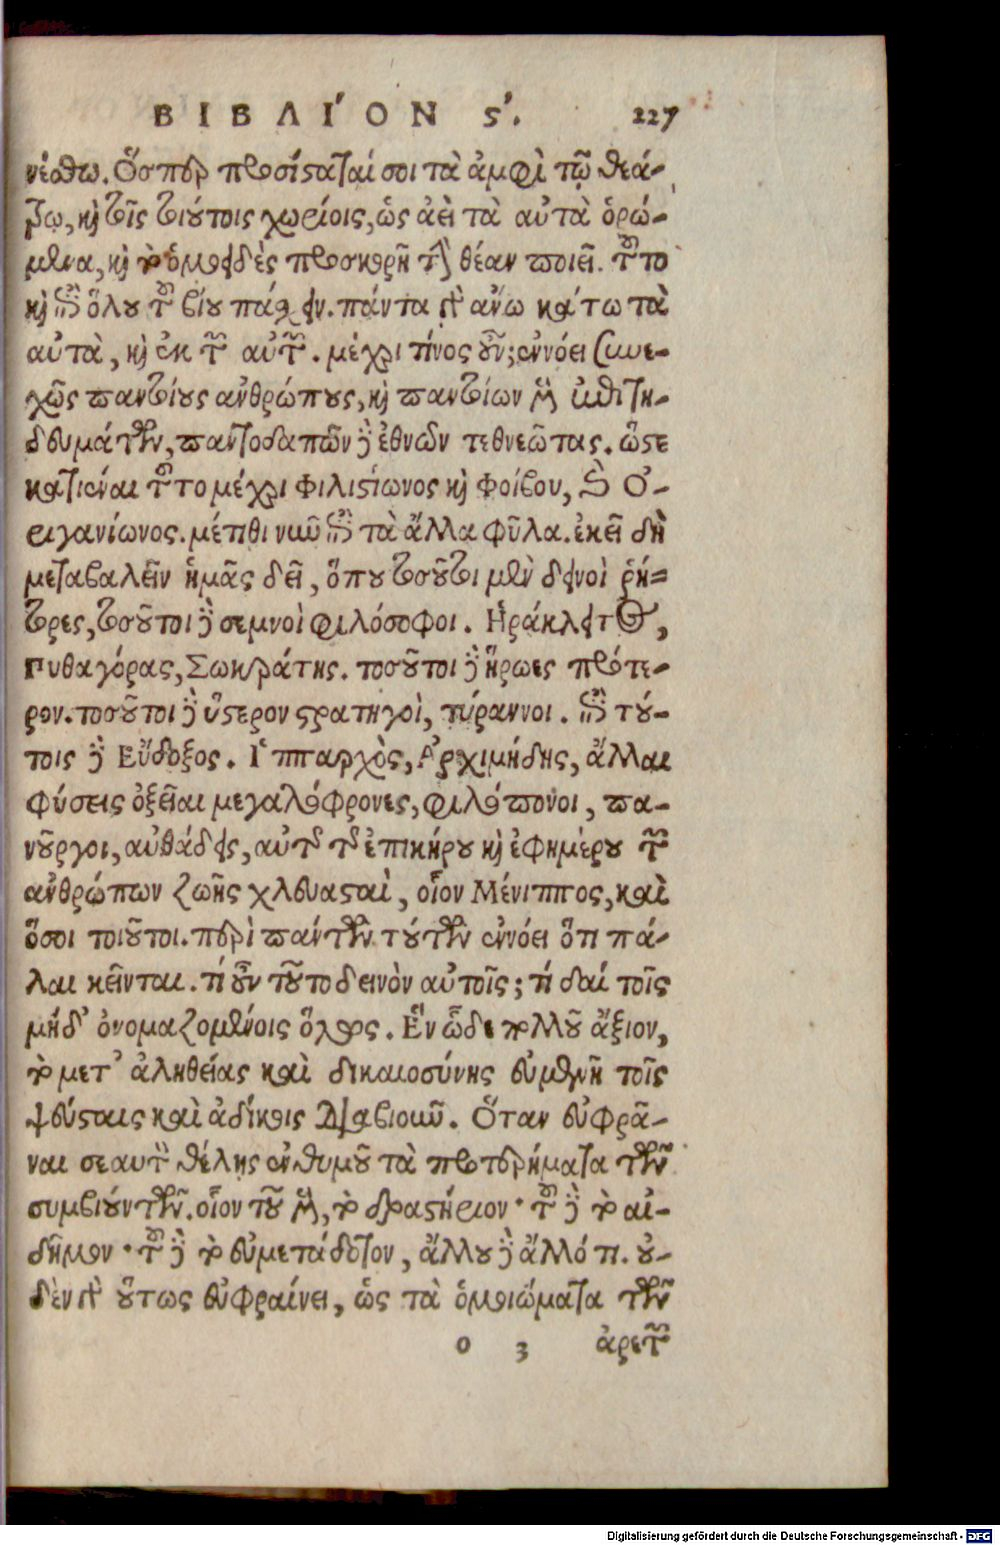 ΒΙΒΛΙ´ΟΝ ϛ´. 227
νέσθω. Ὥσπερ προσίσταταί σοι τὰ ἀμφὶ τῷ θεά-
τρῳ, καὶ τοῖς τοιούτοις χωρίοις, ὡς ἀεὶ τὰ αὐτὰ ὁρώ-
μενα, καὶ τὸ ὁμοειδὲς προσκορῆ τὴν θέαν ποιεῖ. τοῦτο
καὶ ἐπὶ ὅλου τοῦ βίου πάσχειν. πάντα γὰρ ἄνω κάτω τὰ
αὐτὰ, καὶ ἐκ τῶν αὐτῶν. μέχρι τίνος οὖν; ἐννόει συνε-
χῶς παντοίους ἀνθρώπους, καὶ παντοίων μὲν ἐπιτη-
δευμάτων, παντοδαπῶν δὲ ἐθνῶν τεθνεῶτας. ὥστε
κατιέναι τοῦτο μέχρι Φιλιστίωνος καὶ Φοίβου, καὶ Ὀ-
ριγανίωνος. μέτιθι νῦν ἐπὶ τὰ ἄλλα φῦλα. ἐκεῖ δὴ
μεταβαλεῖν ἡμᾶς δεῖ, ὅπου τοσοῦτοι μὲν δεινοὶ ῥή-
τορες, τοσοῦτοι δὲ σεμνοὶ φιλόσοφοι. Ἡράκλειτος,
Πυθαγόρας, Σωκράτης. τοσοῦτοι δὲ ἥρωες πρότε-
ρον. τοσοῦτοι δὲ ὕστερον στρατηγοὶ, τύραννοι. ἐπὶ τού-
τοις δὲ Εὔδοξος. Ἵππαρχὸς, Ἀρχιμήδης, ἄλλαι
φύσεις ὀξεῖαι μεγαλόφρονες, φιλόπονοι, πα-
νοῦργοι, αὐθάδεις, αὐτῆς τῆς ἐπικήρου καὶ ἐφημέρου τῶν
ἀνθρώπων ζωῆς χλευασταὶ, οἷον Μένιππος, καὶ
ὅσοι τοιοῦτοι. περὶ πάντων τούτων ἐννόει ὅτι πά-
λαι κεῖνται. τί οὖν τοῦτο δεινὸν αὐτοῖς; τί δαί τοῖς
μήδ' ὀνομαζομένοις ὅλως. Ἓν ὧδε πολλοῦ ἄξιον,
τὸ μετ' ἀληθείας καὶ δικαιοσύνης εὐμενῆ τοῖς
ψεύσταις καὶ ἀδίκοις διαβιοῦν. Ὅταν εὐφρᾶ-
ναι σεαυτὸν θέλῃς ἐνθυμοῦ τὰ προτερήματα τῶν
συμβιούντων. οἷον τοῦ μὲν, τὸ δραστήριον· τοῦ δὲ τὸ αἰ-
δῆμον· τοῦ δὲ τὸ εὐμετάδοτον, ἄλλου δὲ ἄλλό τι. οὐ-
δὲν γὰρ οὕτως εὐφραίνει, ὡς τὰ ὁμοιώματα τῶν
o 3 ἀρετῶν
Digitalisierung gefördert durch die Deutsche Forschungsgemeinschaft - DFG